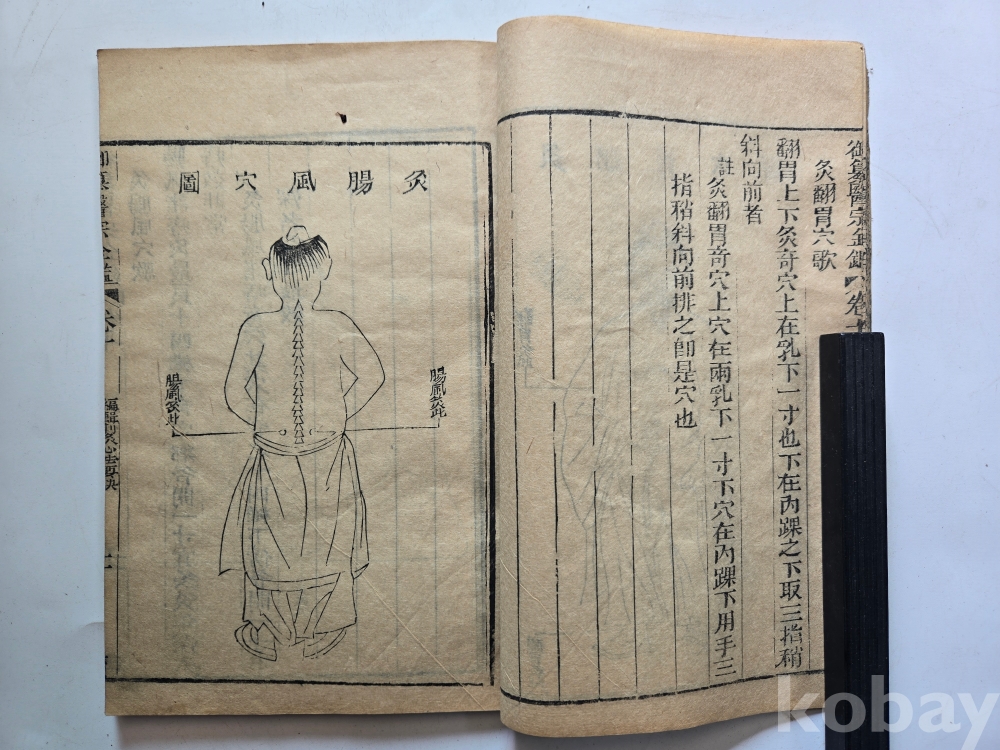 御纂醫宗金鑑 卷十
灸翻胃穴歌
翻胃上下灸奇穴上在乳下一寸也下在內踝之下取三指稍
斜向前者
註灸翻胃奇穴上穴在兩乳下一寸下穴在內踝下用手三
指稍斜向前排之卽是穴也
灸腸風穴圖
腸風灸此
腸風灸此
kobay